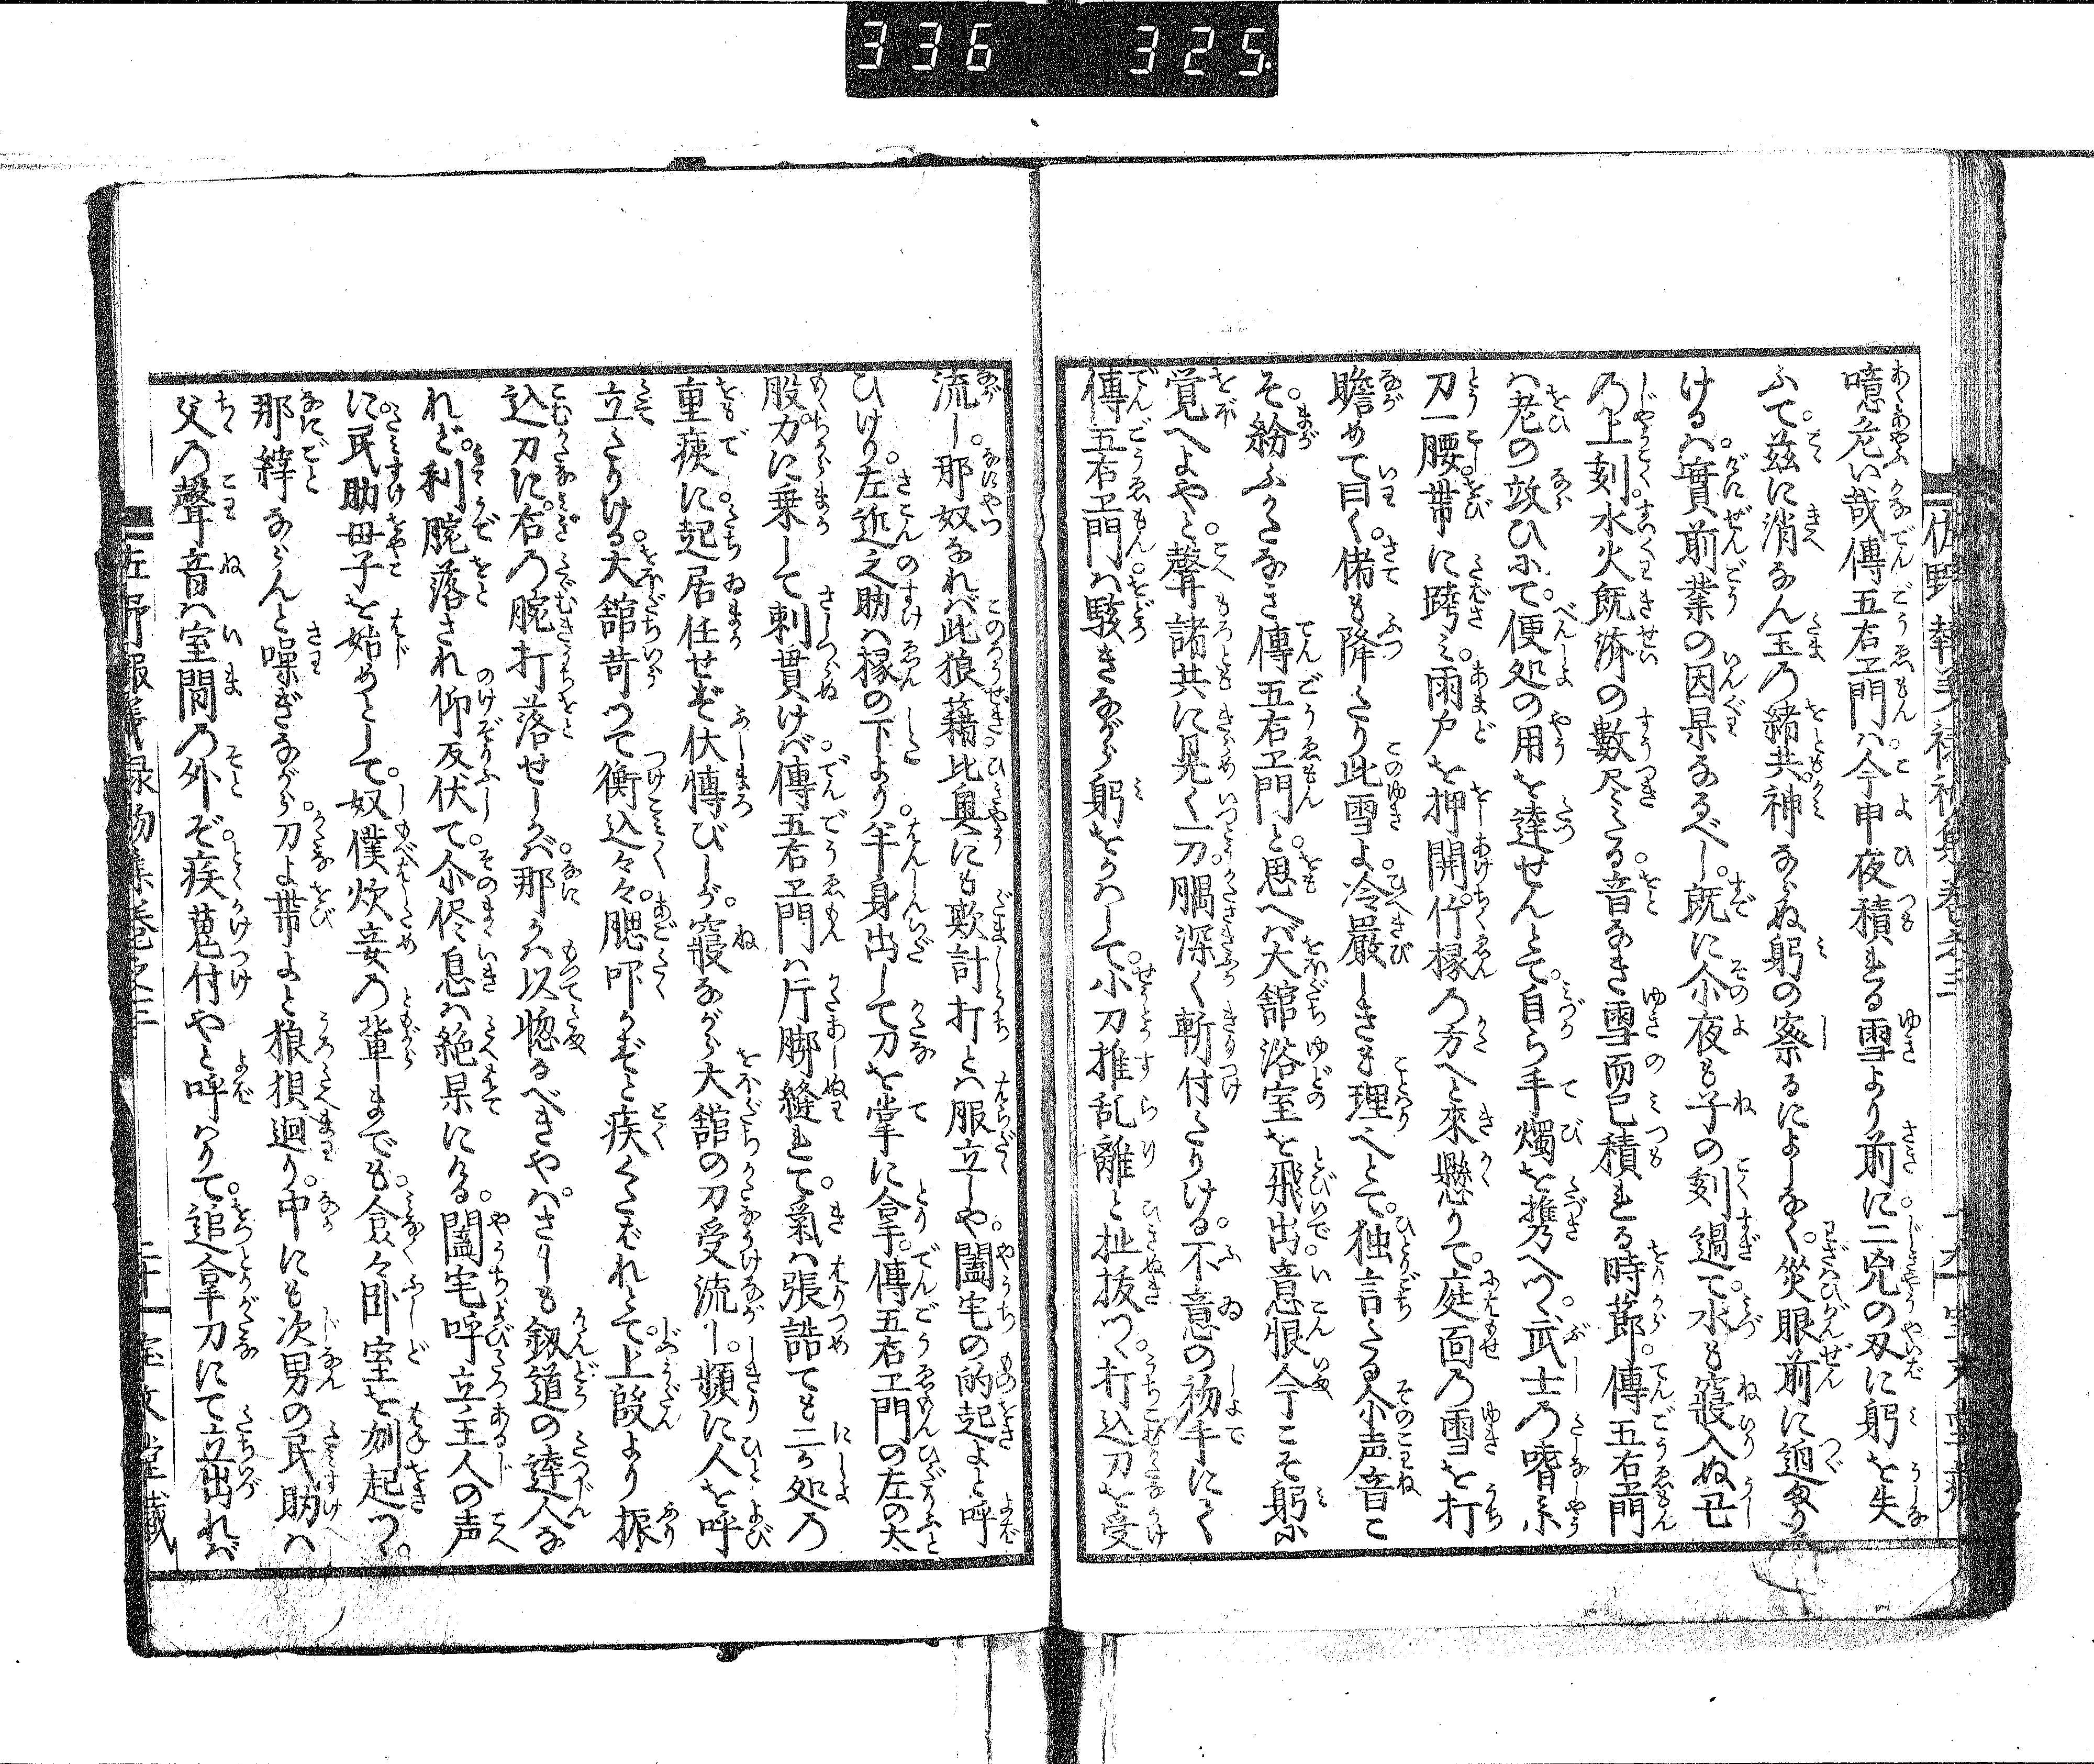 336 325
噫危い哉傳五右エ門ハ今申夜積まる雪より前に二兇の刄に躬を失
ふて。茲に消なん玉乃緒共。神ならぬ躬の察るによしなく。災眼前に迫
ける。ハ實前業の因果なるべし。既に尒夜も子の刻過て。水も寢入ぬ丑
乃上刻。水火既濟の數尽たる。音なき雪而已積まる時節。傳五右エ門
ハ老の效ひふて。便処の用を達せんとて。自ら手燭を携へつゝ。武士乃嗜ミ
刀一腰帯に跨ミ。雨戸を押開。竹椽乃方へと來懸りて。庭面乃雪を打
瞻めて曰く。偖も降たり此雪よ。冷嚴しきも理へとて。独言たる尒声音こ
そ。紛ふかたなき傳五右エ門と。思へバ大舘浴室を飛出。意恨今こそ躬に
覚へよやと。聲諸共に晃く一刀。膕深く斬付たりける。不意の物手にて
傳五右エ門ハ駭きながら躬をかハして。小刀推乱離と扯抜つ。打込刀を受
流し。那奴なれバ此狼藉。比輿にも欺計打とハ服立しや。闔宅の的起よと呼
ひけり。左近之助ハ椽の下より。半身出して刀を掌に拿。傳五右エ門の左の太
股。力に乗して刺貫けバ。傳五右エ門ハ片脚縫まて。氣ハ張詰ても二ヶ処乃
重痍に。起居任せず伏轉びしが。寢ながら大舘の刀受流し。頻に人を呼
立たりける。大舘苛つて衝込々々。腮叩かずと疾くたばれとて。上段より振
込刀に。右乃腕打落せしかバ。那かハ以惚るべきやハ。さしも釼道の達人な
れど。利腕落され仰反伏て。尒侭息ハ絶果にける。闔宅呼立主人の声
に。民助母子を始めとして。奴僕炊妾乃輩までも。僉々卧室を刎起つゝ。
那縡ならんと噪ぎながら。刀よ帯よと狼狽廻り。中にも次男の民助ハ
父乃聲音ハ室間乃外ぞ。疾蒐付やと呼ハりて。追拿刀にて立出れバ